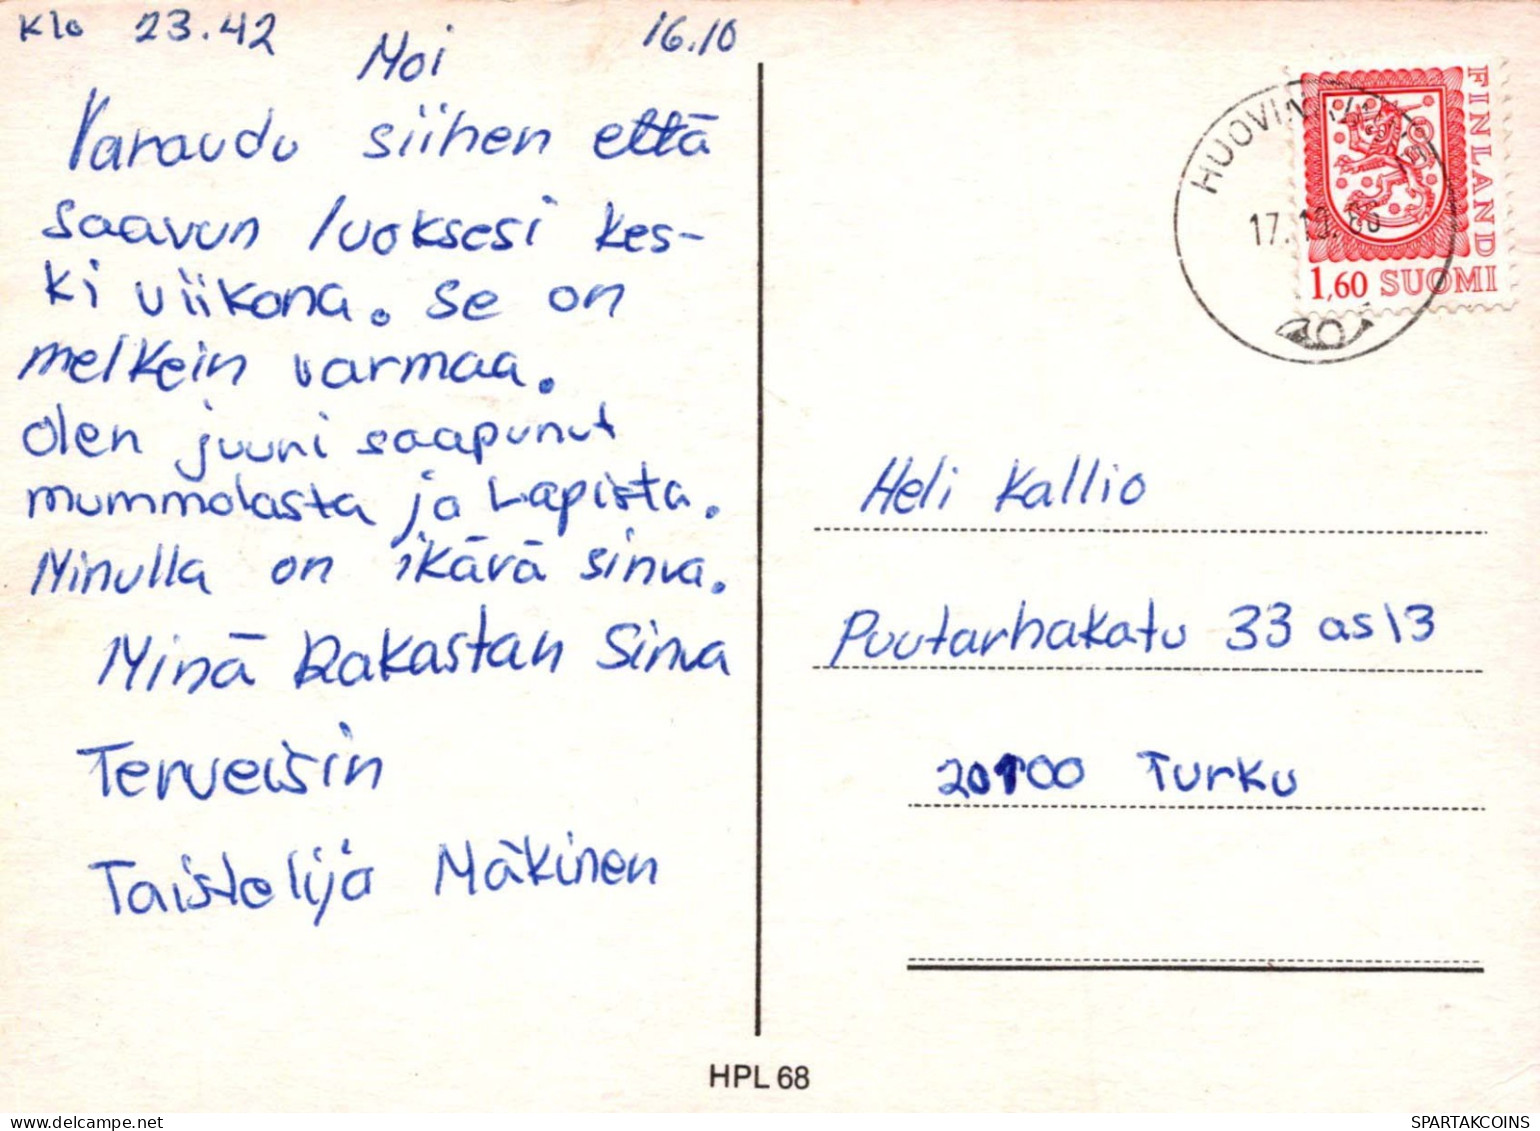 klo 23.42
16.10
Moi
Varaudu siihen että
saavun luoksesi kes-
ki viikona. Se on
melkein varmaa.
Olen juuri saapunut
mummolasta ja Lapista.
Minulla on ikävä sinua.
Minä Rakastan Sinua
Terveisin
Taistelija Mäkinen
FINLAND
1,60 SUOMI
17.10.
Heli Kallio
Puutarhakatu 33 as 13
20100 Turku
HPL 68
SPARTAKCOINS
delcampe.net